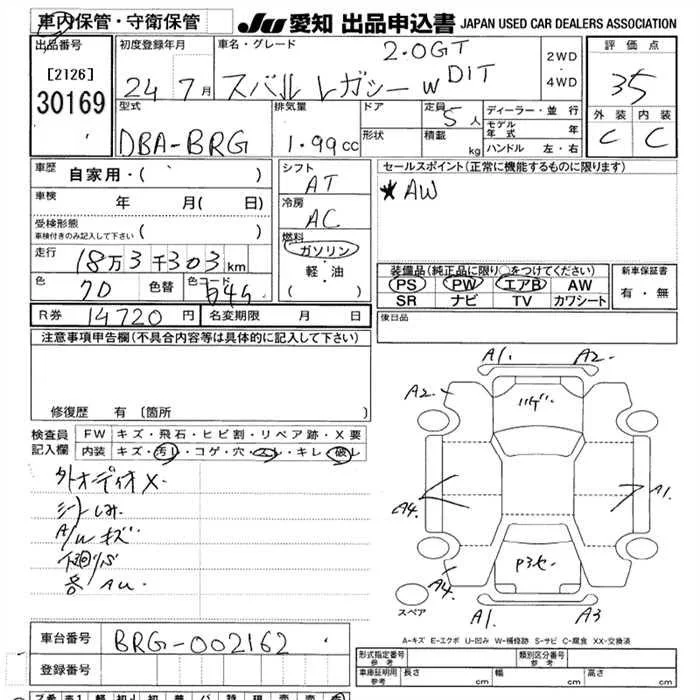 車内保管・守衛保管 JU 愛知 出品申込書 JAPAN USED CAR DEALERS ASSOCIATION
出品番号 初度登録年月 車名・グレード 評価点
[2126] 24 7月 スバル レガシー W 2.0GT DIT 2WD ・ 4WD 35
30169 型式 排気量 ドア 定員 5人 ディーラー・並行 外装 内装
DBA-BRG 1.99cc 形状 積載 kg モデル年式 年 C C
ハンドル 左・右
車歴 自家用・( ) シフト AT セールスポイント(正常に機能するものに限ります)
車検 年 月( 日) 冷房 AC ★AW
受検形態 ( )
車検付きのみ記入して下さい
燃料
走行 18万3千303km ガソリン 装備品(純正品に限り○をつけてください) 新車保証書
色 色替 色コード 軽・油 PS PW エアB AW 有・無
( ) SR ナビ TV カワシート
R券 14720円 名変期限 月 日 後日品
注意事項申告欄(不具合内容等は具体的に記入して下さい)
修復歴 有 [箇所
検査員記入欄 FW キズ・飛石・ヒビ割・リペア跡・X要
内装 キズ・汚レ・コゲ・穴・スレ・キレ・破レ
外オーディオX.
シートしみ
A/Wキズ
A1. A2.
A2.
A4. A1.
A4.
A1 A3
スペア
A-キズ E-エクボ U-凹み W-補修跡 S-サビ C-腐食 XX-交換済
車台番号 BRG-002162
登録番号
形式指定番号 参考 類別区分番号 参考
車庫証明用 参考 長さ cm 幅 cm 高さ cm